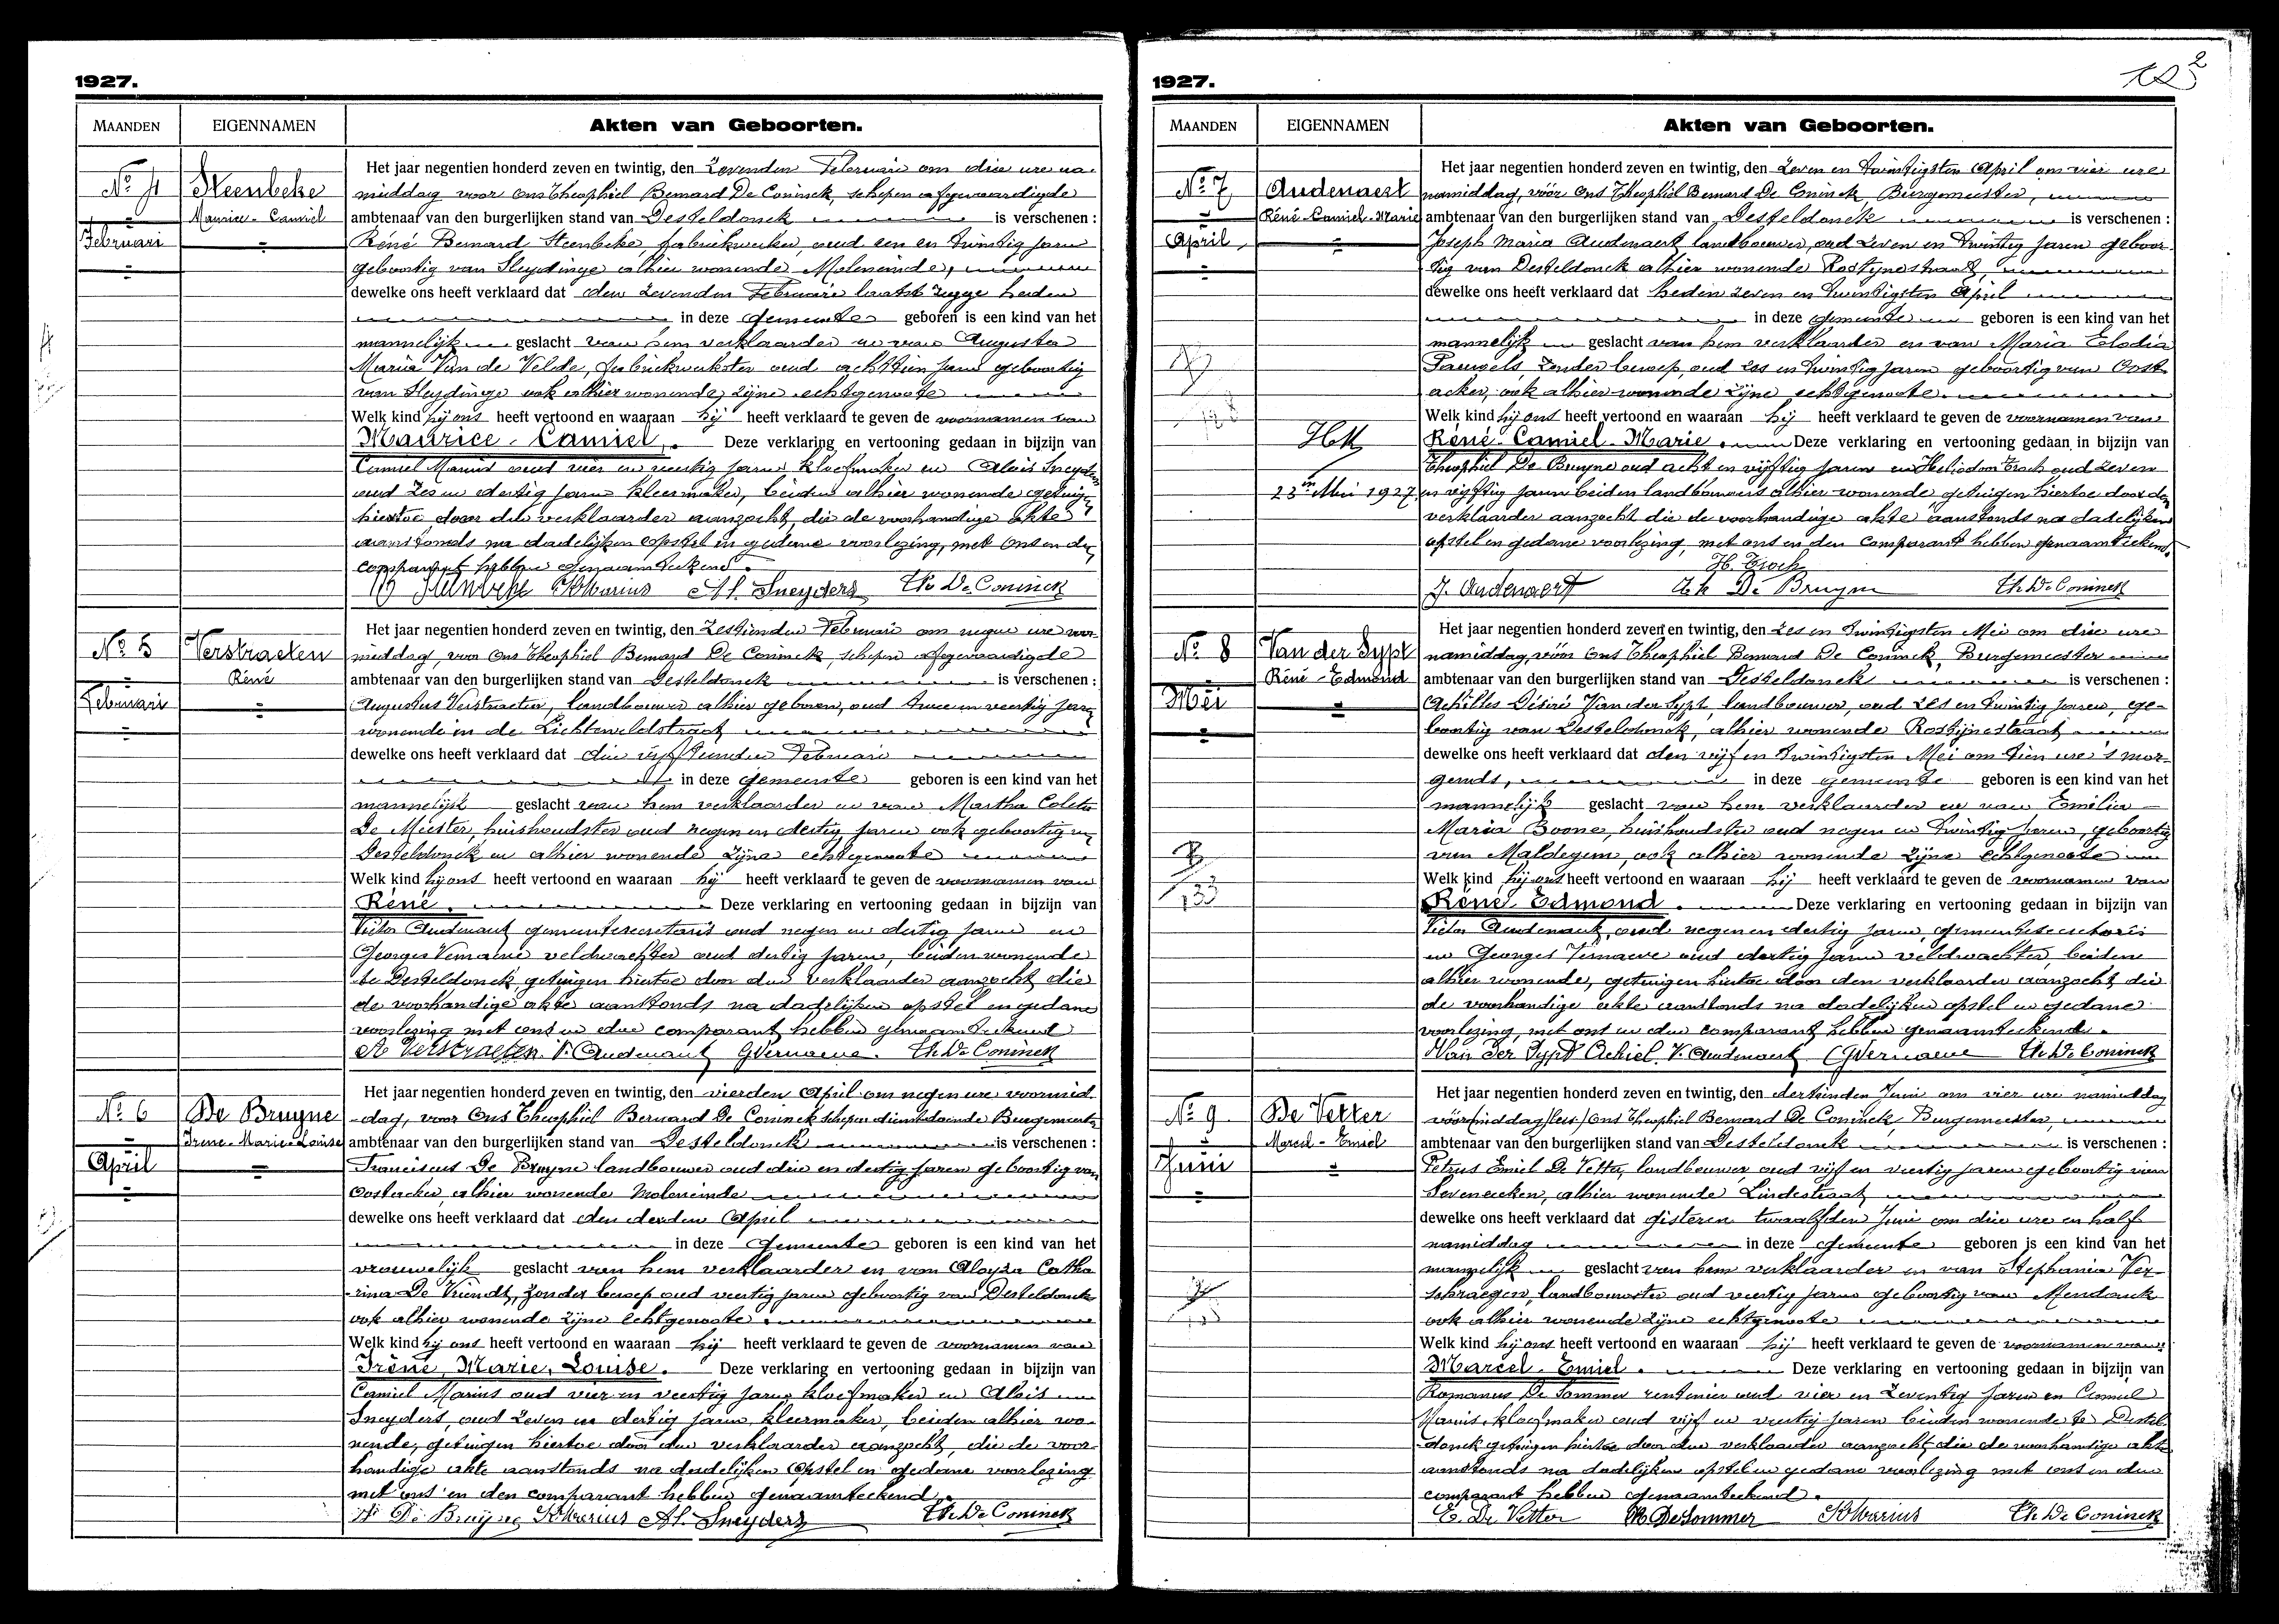 1927.
MAANDEN
EIGENNAMEN
Akten van Geboorten.
No 4
Februari
Steenbeke
Maurice - Camiel
Het jaar negentien honderd zeven en twintig, den Zevenden Februari om drie ure na-
middag voor Ons Theophiel Bernard De Coninck, schepen afgevaardigde
ambtenaar van den burgerlijken stand van Desteldonck is verschenen :
Réné Bernard Steenbeke, fabriekwerker, oud een en twintig jaren
geboortig van Sleydinge alhier wonende Moleneinde,
dewelke ons heeft verklaard dat den zevenden Februari laatst zegge heden
in deze gemeente geboren is een kind van het
mannelijk geslacht van hem verklaarder en van Augusta
Maria Van de Velde, fabriekwerkster oud achttien jaren geboortig
van Sleydinge ook alhier wonende zijne echtgenoote
Welk kind hij ons heeft vertoond en waaraan hij heeft verklaard te geven de voornamen van
Maurice - Camiel. Deze verklaring en vertooning gedaan in bijzijn van
Camiel Marius oud vier en veertig jaren kloefmaker en Alois Sneyders
oud zes en dertig jaren kleermaker, beiden alhier wonende getuigen
hiertoe door den verklaarder aanzocht, die de voorhandige akte
aanstonds na dadelijken opstel en gedane voorlezing, met Ons en den
comparant hebben genaamteekend.
R Steenbeke K Marius Al. Sneyders Th De Coninck
No 5
Februari
Verstraeten
Réné
Het jaar negentien honderd zeven en twintig, den Zestienden Februari om negen ure voor-
middag, voor Ons Theophiel Bernard De Coninck, schepen afgevaardigde
ambtenaar van den burgerlijken stand van Desteldonck is verschenen :
Augustus Verstraeten, landbouwer alhier geboren, oud twee en veertig jaren
wonende in de Lichtenveldstraat
dewelke ons heeft verklaard dat den vijftienden Februari
in deze gemeente geboren is een kind van het
mannelijk geslacht van hem verklaarder en van Martha Coleta
De Meester, huishoudster oud negen en dertig jaren ook geboortig
Desteldonck en alhier wonende zijne echtgenoote
Welk kind hij ons heeft vertoond en waaraan hij heeft verklaard te geven de voornamen van
Réné. Deze verklaring en vertooning gedaan in bijzijn van
Victor Audenaert gemeentesecretaris oud negen en dertig jaren en
Georges Vernaeve veldwachter oud dertig jaren, beiden wonende
te Desteldonck, getuigen hiertoe door den verklaarder aanzocht die
de voorhandige akte aanstonds na dadelijken opstel en gedane
voorlezing met ons en den comparant hebben genaamteekend
A Verstraeten. V. Audenaert G Vernaeve. Th. De Coninck
No 6
April
De Bruyne
Irène-Marie-Louise
Het jaar negentien honderd zeven en twintig, den vierden April om negen ure voormid-
-dag, voor Ons Theophiel Bernard De Coninck schepen dienstdoende Burgemeester
ambtenaar van den burgerlijken stand van Desteldonck is verschenen :
Franciscus De Bruyne landbouwer oud drie en dertig jaren geboortig van
Oostacker, alhier wonende Moleneinde
dewelke ons heeft verklaard dat den derden April
in deze gemeente geboren is een kind van het
vrouwelijk geslacht van hem verklaarder en van Aloyza Catha
-rina De Vriendt, zonder beroep oud veertig jaren geboortig van Desteldonck
ook alhier wonende zijne echtgenoote
Welk kind hij ons heeft vertoond en waaraan hij heeft verklaard te geven de voornamen van
Irène, Marie, Louise. Deze verklaring en vertooning gedaan in bijzijn van
Camiel Marius oud vier en veertig jaren kloefmaker en Alois
Sneyders, oud zeven en dertig jaren, kleermaker, beiden alhier wo-
nende, getuigen hiertoe door den verklaarder aanzocht, die de voor-
handige akte aanstonds na dadelijken opstel en gedane voorlezing
met ons en den comparant hebben genaamteekend.
Fr De Bruyne K Marius Al. Sneyders Th De Coninck
1927.
MAANDEN
EIGENNAMEN
Akten van Geboorten.
No 7
April
Audenaert
Réné-Camiel-Marie
23n Mei 1927
Het jaar negentien honderd zeven en twintig, den Zeven en twintigsten April om vier ure
namiddag, vóór Ons Theophiel Bernard De Coninck, Burgemeester,
ambtenaar van den burgerlijken stand van Desteldonck is verschenen :
Joseph Maria Audenaert landbouwer, oud zeven en twintig jaren geboor-
tig van Desteldonck alhier wonende Rostijnestraat,
dewelke ons heeft verklaard dat heden zeven en twintigsten April
in deze gemeente geboren is een kind van het
mannelijk geslacht van hem verklaarder en van Maria Elodia
Pauwels, zonder beroep, oud zes en twintig jaren geboortig van Oost-
acker, ook alhier wonende zijne echtgenoote.
Welk kind hij ons heeft vertoond en waaraan hij heeft verklaard te geven de voornamen van
Réné-Camiel-Marie. Deze verklaring en vertooning gedaan in bijzijn van
Theophiel De Bruyne oud acht en vijftig jaren en Heliodoor Troch oud zeven
en vijftig jaren beiden landbouwers alhier wonende getuigen hiertoe door den
verklaarder aanzocht die de voorhandige akte aanstonds na dadelijken
opstel en gedane voorlezing, met ons en den comparant hebben genaamteekend.
H. Troch
J. Audenaert Th De Bruyne Th De Coninck
No 8
Mei
Van der Sypt
Réné - Edmond
Het jaar negentien honderd zeven en twintig, den zes en twintigsten Mei om drie ure
namiddag, vóór Ons Theophiel Bernard De Coninck, Burgemeester
ambtenaar van den burgerlijken stand van Desteldonck is verschenen :
Achilles Désiré Van der Sypt, landbouwer, oud zes en twintig jaren, ge-
boortig van Desteldonck, alhier wonende Rostijnestraat
dewelke ons heeft verklaard dat den vijf en twintigsten Mei om tien ure 's mor-
gends, in deze gemeente geboren is een kind van het
mannelijk geslacht van hem verklaarder en van Emilia
Maria Boone, huishoudster oud negen en twintig jaren, geboortig
van Maldegem, ook alhier wonende zijne echtgenoote
Welk kind hij ons heeft vertoond en waaraan hij heeft verklaard te geven de voornamen van
Réné Edmond. Deze verklaring en vertooning gedaan in bijzijn van
Victor Audenaert, oud negen en dertig jaren, gemeentesecretaris
en Georges Vernaeve oud dertig jaren veldwachter, beiden
alhier wonende, getuigen hiertoe door den verklaarder aanzocht die
de voorhandige akte aanstonds na dadelijken opstel en gedane
voorlezing, met ons en den comparant hebben genaamteekend.
Van der Sypt Achiel V. Audenaert G Vernaeve Th De Coninck
No 9
Juni
De Vetter
Marcel - Emiel
Het jaar negentien honderd zeven en twintig, den dertienden Juni om vier ure namiddag
vóór(middag) Ons Theophiel Bernard De Coninck, Burgemeester,
ambtenaar van den burgerlijken stand van Desteldonck is verschenen :
Petrus Emiel De Vetter, landbouwer, oud vijf en veertig jaren geboortig van
Seveneecken, alhier wonende Lindestraat
dewelke ons heeft verklaard dat gisteren twaalfden Juni om drie ure en half
namiddag in deze gemeente geboren is een kind van het
mannelijk geslacht van hem verklaarder en van Stephania Ver-
schraegen, landbouwster oud veertig jaren geboortig van Mendonck
ook alhier wonende zijne echtgenoote
Welk kind hij ons heeft vertoond en waaraan hij heeft verklaard te geven de voornamen van
Marcel - Emiel. Deze verklaring en vertooning gedaan in bijzijn van
Romanus De Sommer rentenier oud vier en zeventig jaren en Camiel
Marius, kloefmaker oud vijf en veertig jaren beiden wonende te Destel-
donck getuigen hiertoe door den verklaarder aanzocht, die de voorhandige akte
aanstonds na dadelijken opstel en gedane voorlezing met ons en den
comparant hebben genaamteekend.
E. De Vetter R De Sommer K Marius Th De Coninck